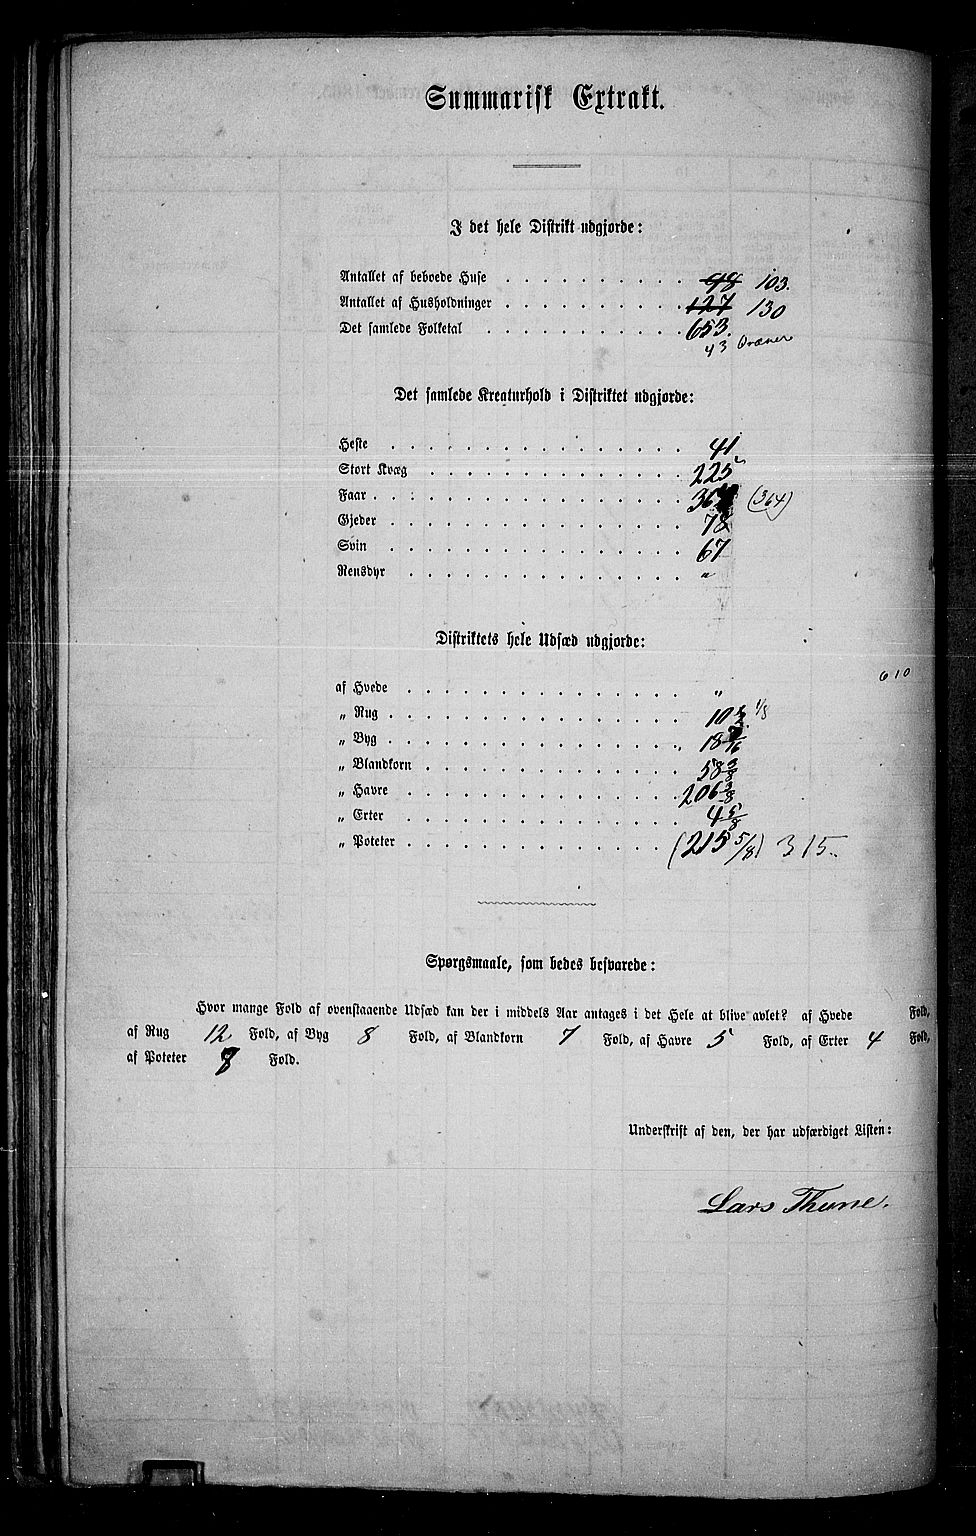 Summarisk Extrakt.
I det hele Distrikt udgjorde:
Antallet af beboede Huse . . . . . . . . . . 98 103.
Antallet af Husholdninger . . . . . . . . . . 127 130
Det samlede Folketal . . . . . . . . . . . 653.
43
Det samlede Kreaturhold i Distriktet udgjorde:
Heste . . . . . . . . . . . . . . . . 41
Stort Kvæg . . . . . . . . . . . . . . 225
Faar . . . . . . . . . . . . . . . . 364 (364)
Gjeder . . . . . . . . . . . . . . . . 78
Svin . . . . . . . . . . . . . . . . 67
Rensdyr . . . . . . . . . . . . . . . "
Distriktets hele Udsæd udgjorde:
af Hvede . . . . . . . . . . . . . . . "
610
„ Rug . . . . . . . . . . . . . . . . 10 1/8
„ Byg . . . . . . . . . . . . . . . . 18 7/16
„ Blandkorn . . . . . . . . . . . . . . 58 3/8
„ Havre . . . . . . . . . . . . . . . 206 3/8
„ Erter . . . . . . . . . . . . . . . 4 5/8
„ Poteter . . . . . . . . . . . . . . (215 5/8) 315.
Spørgsmaale, som bedes besvarede:
Hvor mange Fold af ovenstaaende Udsæd kan der i middels Aar antages i det Hele at blive avlet? af Hvede Fold,
af Rug 12 Fold, af Byg 8 Fold, af Blandkorn 7 Fold, af Havre 5 Fold, af Erter 4 Fold,
af Poteter 8 Fold.
Underskrift af den, der har udfærdiget Listen:
Lars Thune.